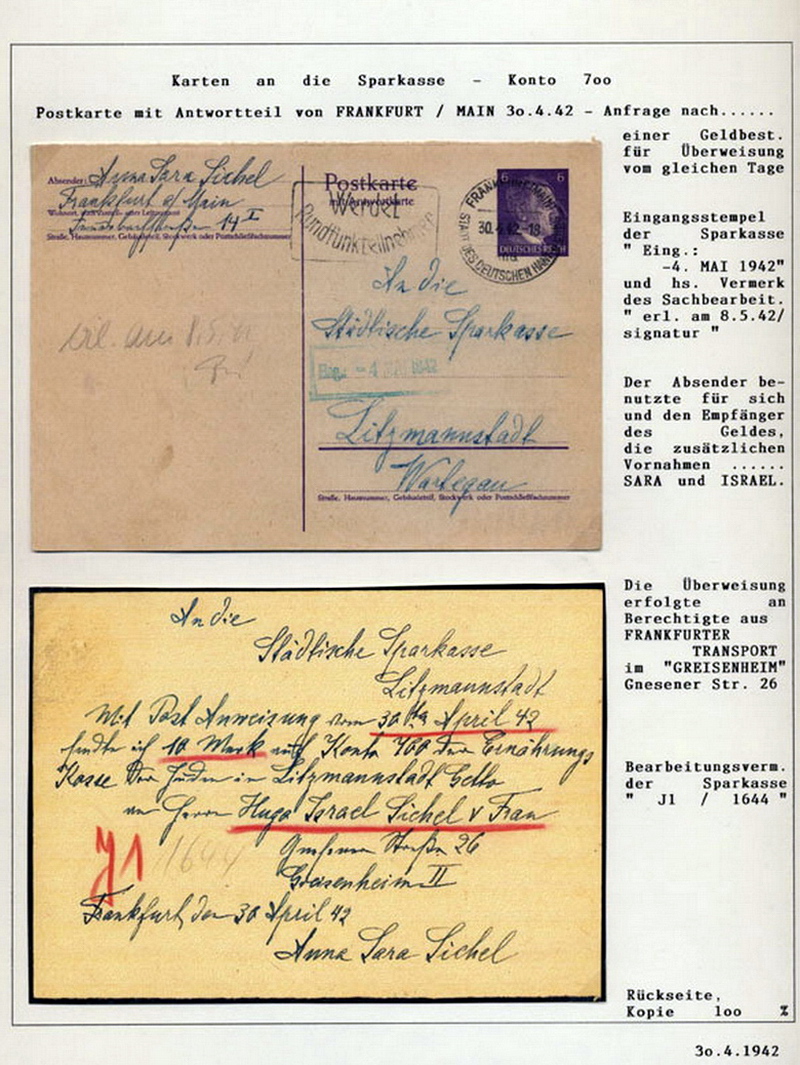 Karten an die Sparkasse - Konto 7oo
Postkarte mit Antwortteil von FRANKFURT / MAIN 3o.4.42 - Anfrage nach......
einer Geldbest.
für Überweisung
vom gleichen Tage
Eingangsstempel
der Sparkasse
" Eing.:
-4. MAI 1942"
und hs. Vermerk
des Sachbearbeit.
" erl. am 8.5.42/
signatur "
Der Absender be-
nutzte für sich
und den Empfänger
des Geldes,
die zusätzlichen
Vornahmen ......
SARA und ISRAEL.
Absender: Anna Sara Sichel
Frankfurt a/Main
Wohnort, auch Zustell- oder Leitpostamt
14 I
Straße, Hausnummer, Gebäudeteil, Stockwerk oder Postschließfachnummer
Postkarte
mit Antwortkarte
Werdet
Rundfunkteilnehmer
FRANKFURT (MAIN)
30.4.42-18
STADT DES DEUTSCHEN HANDWERKS
6 6
DEUTSCHES REICH
An die
Städtische Sparkasse
Eing.: -4. MAI 1942
Litzmannstadt
Wartegau
Straße, Hausnummer, Gebäudeteil, Stockwerk oder Postschließfachnummer
erl. am 8.5.42
An die
Städtische Sparkasse
Litzmannstadt
Mit Post Anweisung vom 30ten April 42
sandte ich 10 Mark auf Konto 700 der Ernährungs
Kasse der Juden in Litzmannstadt Getto
an Herrn Hugo Israel Sichel u Frau
Gnesener Straße 26
Greisenheim II
J1 1644
Frankfurt, den 30 April 42
Anna Sara Sichel
Die Überweisung
erfolgte an
Berechtigte aus
FRANKFURTER
TRANSPORT
im "GREISENHEIM"
Gnesener Str. 26
Bearbeitungsverm.
der Sparkasse
" J1 / 1644 "
Rückseite,
Kopie 1oo %
3o.4.1942